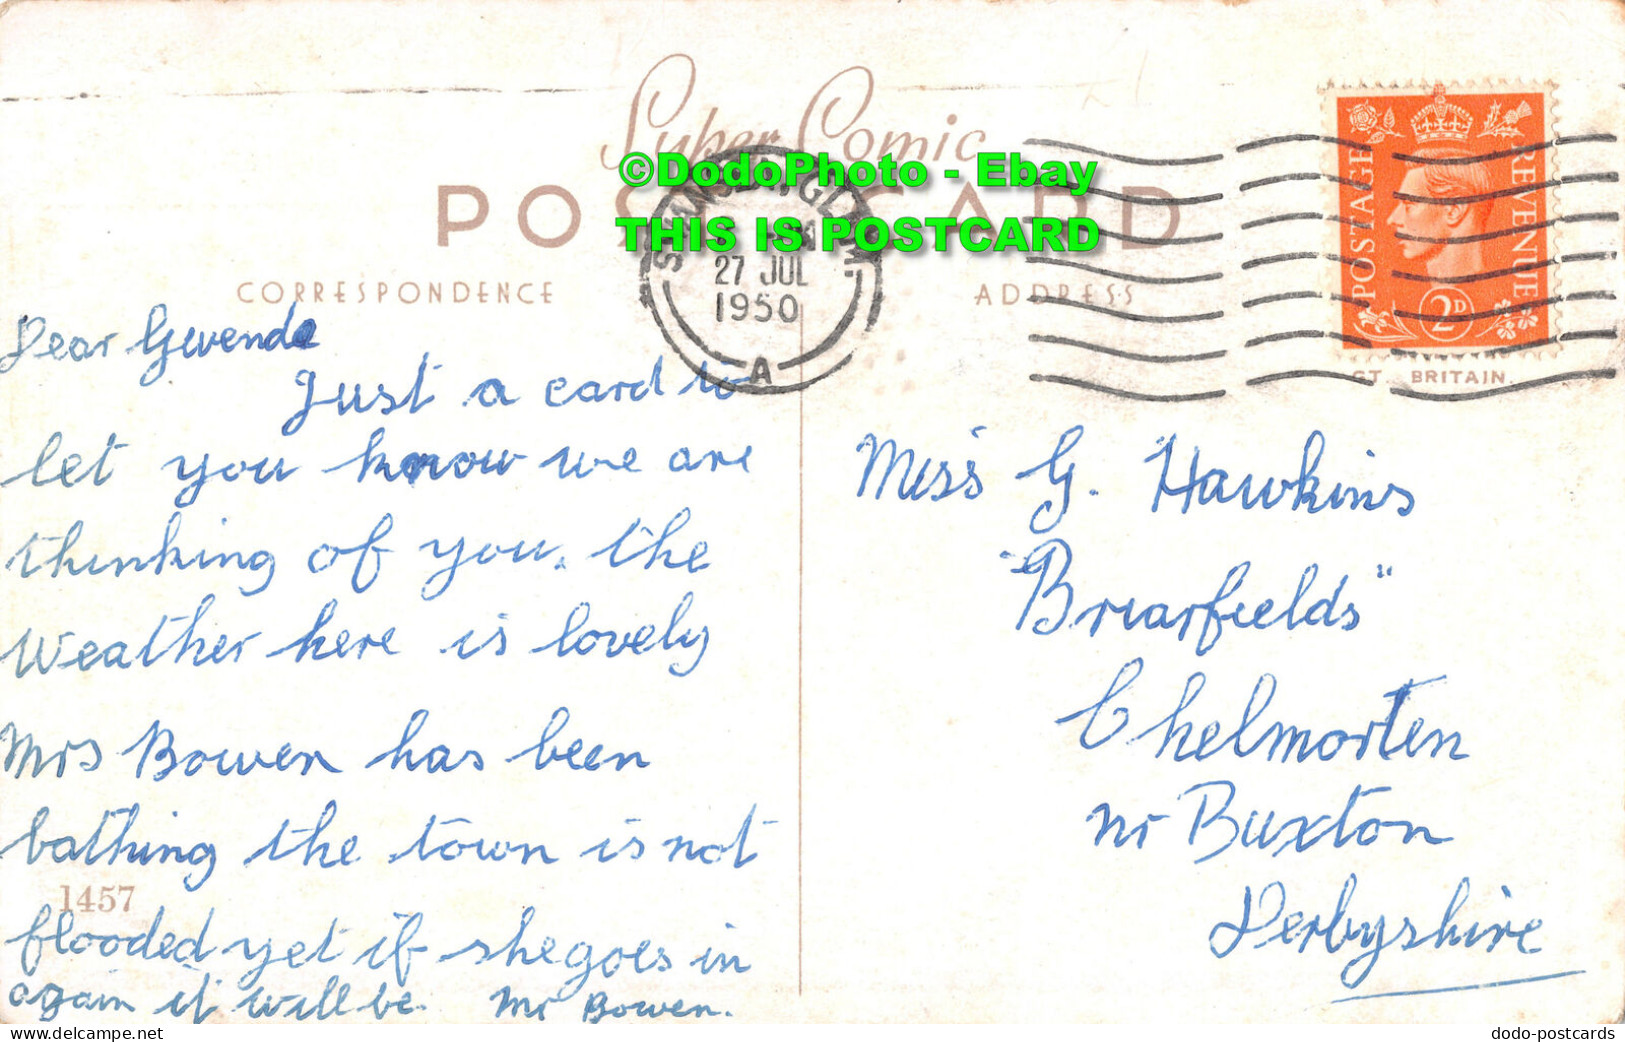 Super Comic
POST CARD
©DodoPhoto - Ebay
THIS IS POSTCARD
SWANSEA, GLAM.
27 JUL
1950
A
POSTAGE
REVENUE
2D
GT. BRITAIN.
CORRESPONDENCE
ADDRESS
Dear Gwenda
Just a card to
let you know we are
thinking of you. the
Weather here is lovely
Mrs Bowen has been
bathing the town is not
flooded yet if she goes in
again it will be. Mr Bowen.
1457
Miss G. Hawkins
"Briarfields"
Chelmorten
nr Buxton
Derbyshire
www.delcampe.net
dodo-postcards